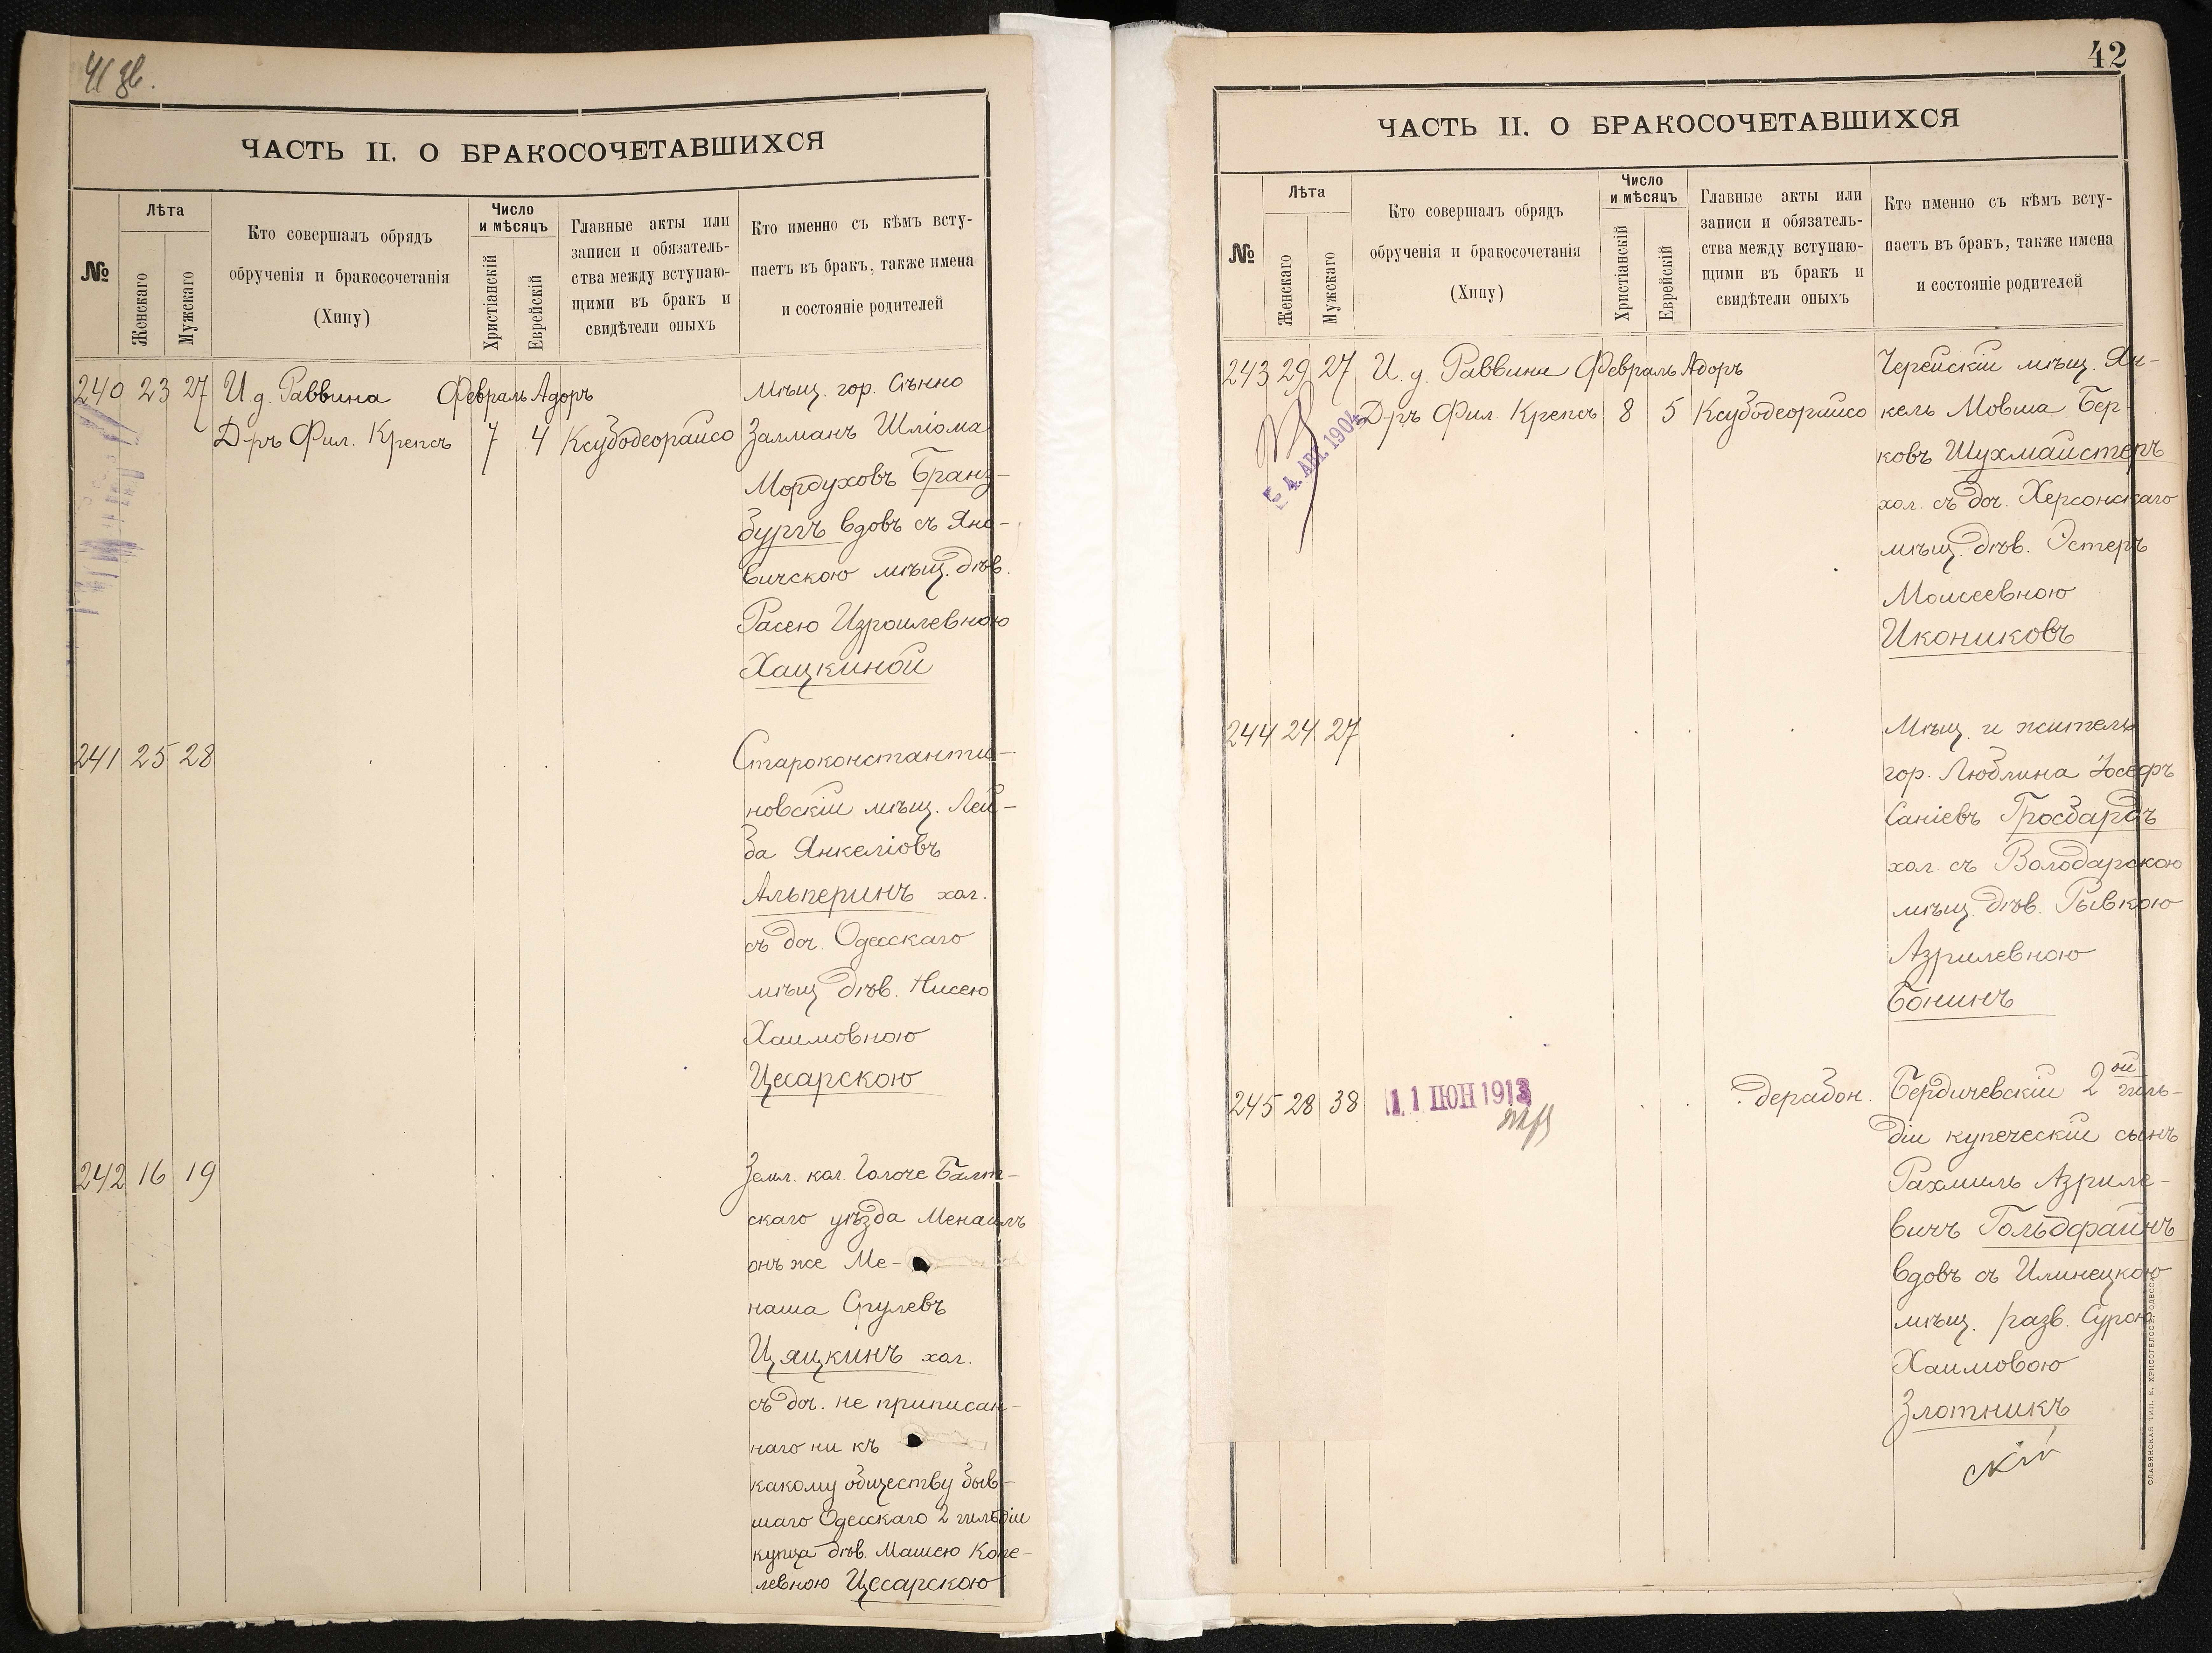 41 зв.
ЧАСТЬ II. О БРАКОСОЧЕТАВШИХСЯ
№
Лѣта
Женскаго
Мужскаго
Кто совершалъ обрядъ
обрученія и бракосочетанія
(Хипу)
Число
и мѣсяцъ
Христіанскій
Еврейскій
Главные акты или
записи и обязатель-
ства между вступаю-
щими въ бракъ и
свидѣтели оныхъ
Кто именно съ кѣмъ всту-
паетъ въ бракъ, также имена
и состояніе родителей
240 23 27 И. д. Раввина Февраль Адоръ
Д-ръ Фил. Крепсъ 7 4 Ксубодеорайсо
Мѣщ. гор. Сѣнно
Залманъ Шліома
Мордуховъ Гранз-
бургъ вдовъ съ Яно-
вичскою мѣщ. дѣв.
Расею Изроилевною
Хацкиной
241 25 28
Староконстанти-
новскій мѣщ. Лей-
ба Янкеліовъ
Альперинъ хол.
съ доч. Одесскаго
мѣщ дѣв. Нисею
Хаимовною
Цесарскою
242 16 19
Земл. кол. Голоче Балт-
скаго уѣзда Менаилъ
онъ же Ме-
наша Срулевъ
Цяцкинъ хол.
съ доч. не приписан-
наго ни къ
какому обществу быв-
шаго Одесскаго 2 гильдіи
купца дѣв. Машею Копе-
левною Цесарскою
42
ЧАСТЬ II. О БРАКОСОЧЕТАВШИХСЯ
№
Лѣта
Женскаго
Мужскаго
Кто совершалъ обрядъ
обрученія и бракосочетанія
(Хипу)
Число
и мѣсяцъ
Христіанскій
Еврейскій
Главные акты или
записи и обязатель-
ства между вступаю-
щими въ бракъ и
свидѣтели оныхъ
Кто именно съ кѣмъ всту-
паетъ въ бракъ, также имена
и состояніе родителей
243 29 27 И. д. Раввина Февраль Адоръ
Д-ръ Фил. Крепсъ 8 5 Ксубодеорайсо
4. АВГ. 1904
Черейскій мѣщ. Ян-
кель Мовша Бер-
ковъ Шухмайстеръ
хол. съ доч. Херсонскаго
мѣщ. дѣв. Эстеръ
Моисеевною
Икониковъ
244 24 27
Мѣщ. и житель
гор. Люблина Іосефъ
Саніевъ Гросбардъ
хол. съ Володарскою
мѣщ. дѣв. Рывкою
Азрилевною
Бонинъ
245 28 38 11 ІЮН 1913 дерабон.
Бердичевскій 2ой гиль-
діи купеческій сынъ
Рахмиль Азриле-
вичъ Гольдфайнъ
вдовъ съ Илинецкою
мѣщ. разв. Сурою
Хаимовою
Злотникъ
скій
СЛАВЯНСКАЯ ТИП. Е. ХРИСОГЕЛОСЪ, ОДЕССА